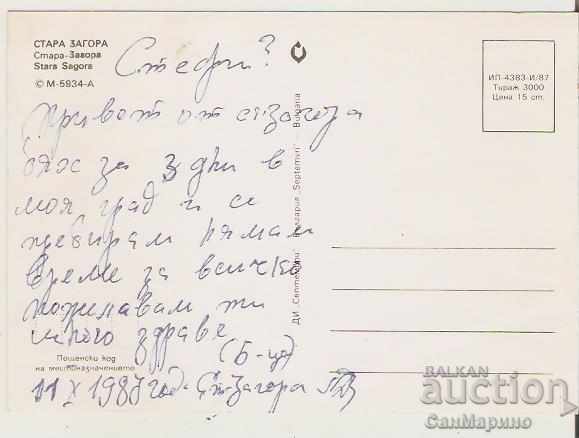 СТАРА ЗАГОРА
Стара-Загора
Stara Sagora
© М-5934-А
Стефи?
привет от ст. Загора
бях за 3 дни в
моя град и се
прибирам нямам
време за всичко
пожелавам ти
много здраве
(Б-ця)
11 X 1987 год. Ст. Загора
Пощенски код
на местоназначението
ДИ „Септември" България "Septemvri" - Bulgaria
ИП-4383-И/87
Тираж 3000
Цена 15 ст.
BALKAN
auction
СанМарино